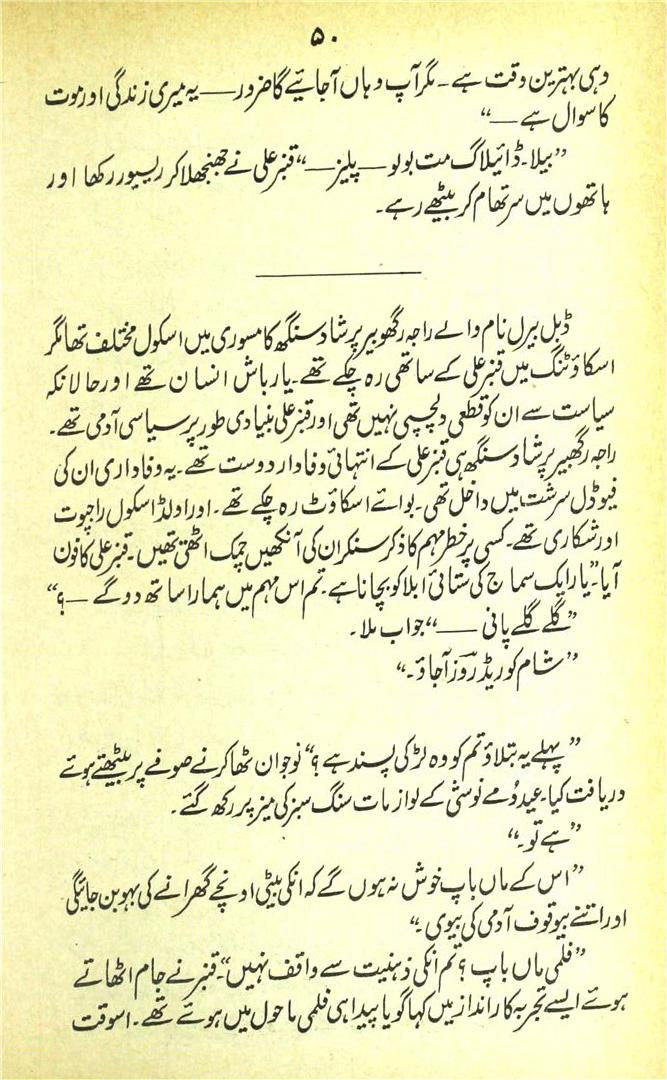 ۵۰
وہی بہترین وقت ہے۔ مگر آپ وہاں آجائیے گا ضرور — یہ میری زندگی اور موت
کا سوال ہے —“
”بیلا۔ ڈائیلاگ مت بولو — پلیز —“ قنبر علی نے جھنجھلا کر ریسیور رکھا اور
ہاتھوں میں سر تھام کر بیٹھے رہے۔
ڈبل بیرل نام والے راجہ رگھوبیر پرشاد سنگھ کا مسوری میں اسکول مختلف تھا مگر
اسکاؤٹنگ میں قنبر علی کے ساتھی رہ چکے تھے۔ یار باش انسان تھے اور حالانکہ
سیاست سے ان کو قطعی دلچسپی نہیں تھی اور قنبر علی بنیادی طور پر سیاسی آدمی تھے۔
راجہ رگھبیر پرشاد سنگھ ہی قنبر علی کے انتہائی وفادار دوست تھے۔ یہ وفاداری ان کی
فیوڈل سرشت میں داخل تھی۔ بوائے اسکاؤٹ رہ چکے تھے۔ اور اولڈ اسکول راجپوت
اور شکاری تھے۔ کسی پر خطر مہم کا ذکر سنکر ان کی آنکھیں چمک اٹھتی تھیں۔ قنبر علی کا فون
آیا۔ ”یار ایک سماج کی ستائی ابلا کو بچانا ہے۔ تم اس مہم میں ہمارا ساتھ دو گے —؟“
”گلے گلے پانی —“ جواب ملا۔
”شام کو ریڈ روز آجاؤ۔“
”پہلے یہ بتلاؤ تم کو وہ لڑکی پسند ہے؟“ نوجوان ٹھاکر نے صوفے پر بیٹھتے ہوئے
دریافت کیا۔ عیدو مے نوشی کے لوازمات سنگ سبز کی میز پر رکھ گئے۔
”ہے تو۔“
”اس کے ماں باپ خوش نہ ہوں گے کہ انکی بیٹی اونچے گھرانے کی بہو بن جائیگی
اور اتنے بیوقوف آدمی کی بیوی۔“
”فلمی ماں باپ؟ تم انکی ذہنیت سے واقف نہیں“۔ قنبر نے جام اٹھاتے
ہوئے ایسے تجربہ کار انداز میں کہا گویا پیدا ہی فلمی ماحول میں ہوئے تھے۔ اسوقت